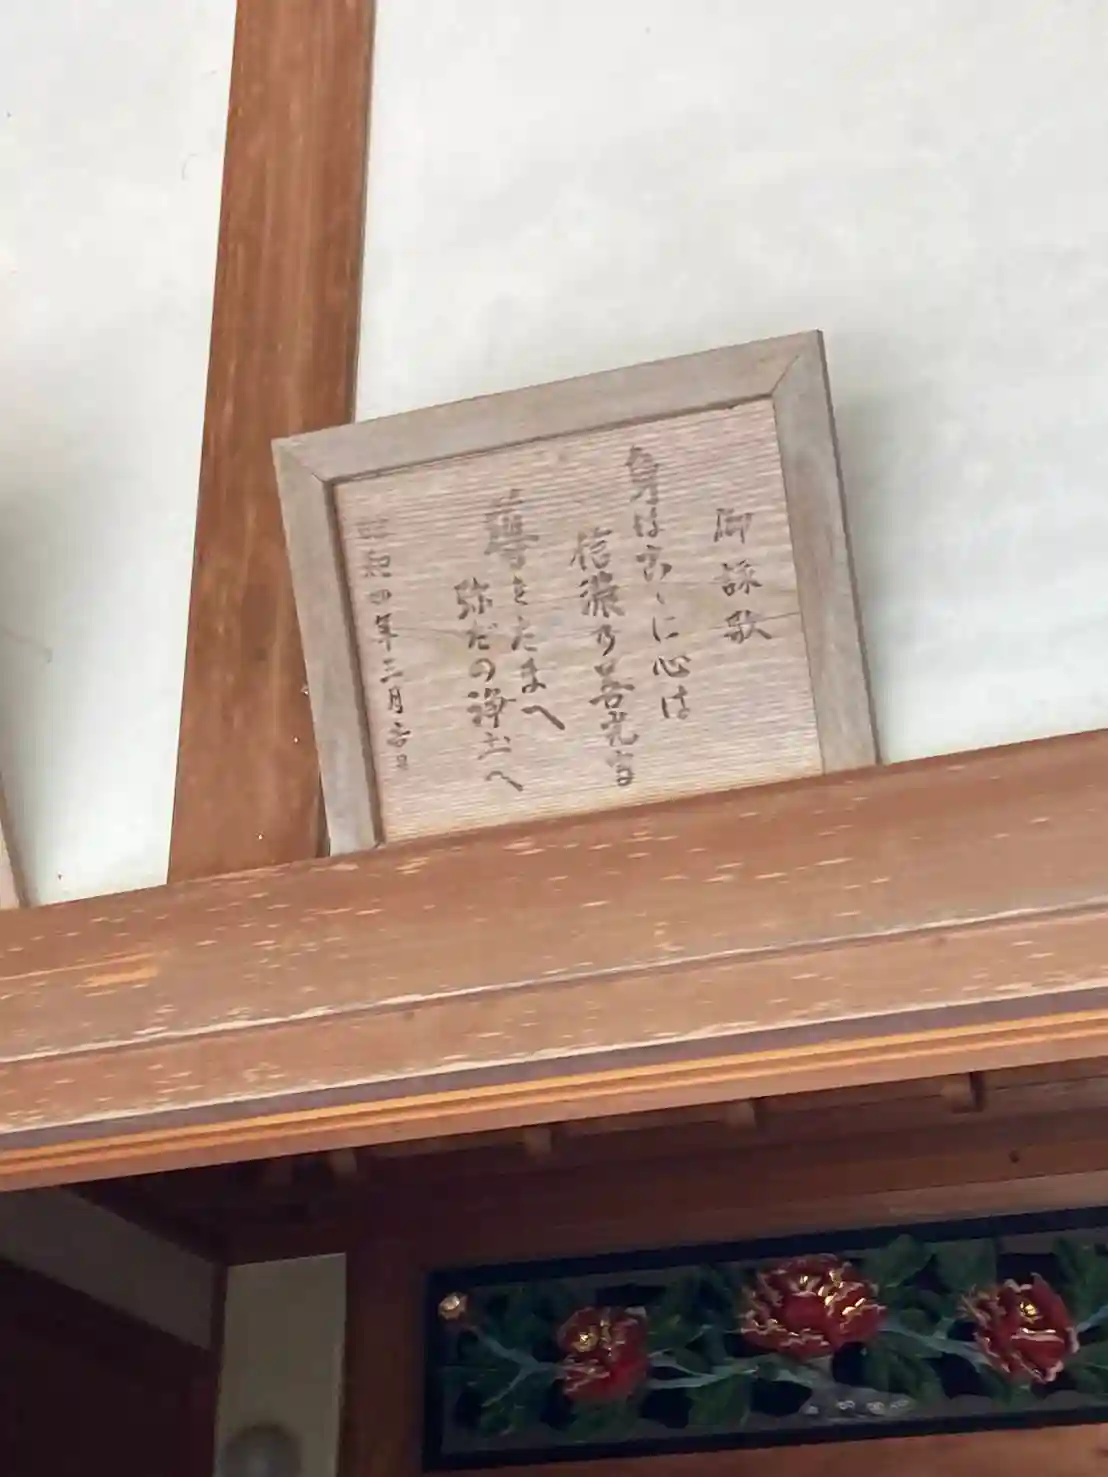 御詠歌
身はこゝに心は
信濃乃善光寺
導きたまへ
弥だの浄土へ
昭和四年三月吉日